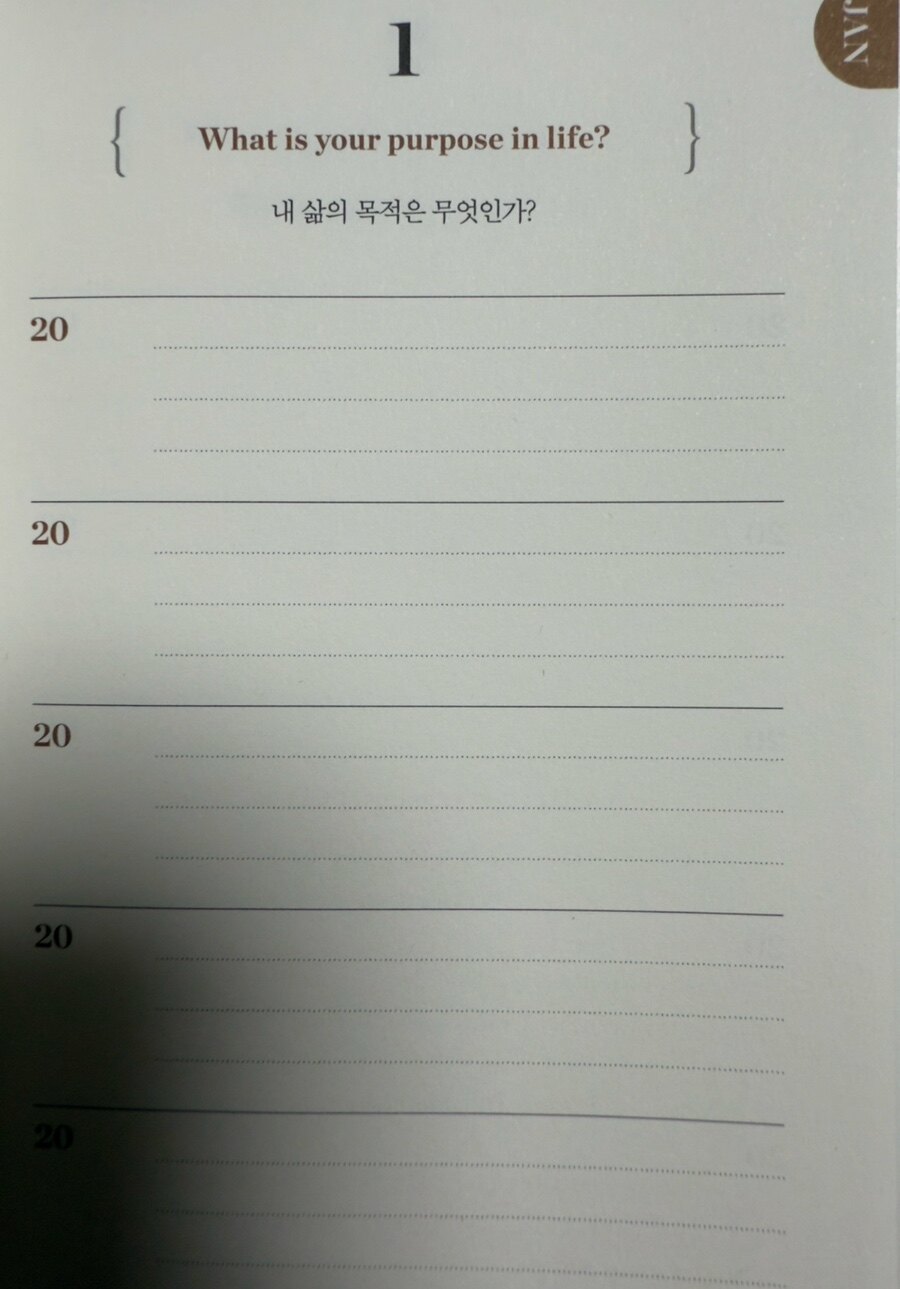 JAN
1
{ What is your purpose in life? }
내 삶의 목적은 무엇인가?
20
20
20
20
20